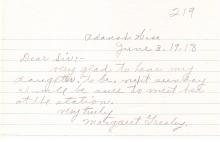 219
Adams Wis
June 3, 1918
Dear Sir:-
very glad to hear my
daughter to be, next sunday
I will be sure to meet her
at the station.
very truly
Margaret